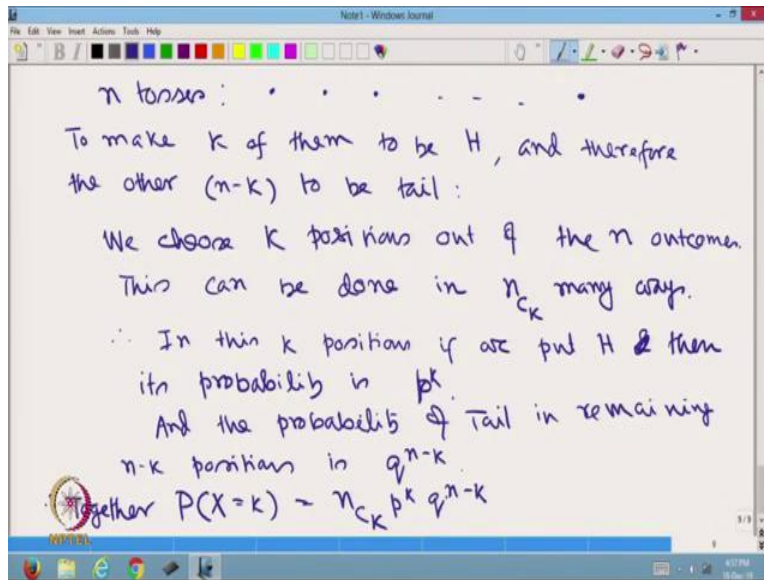 Note1 - Windows Journal
File Edit View Insert Actions Tools Help
n tosses : . . . - - . .
To make K of them to be H, and therefore
the other (n-k) to be tail :
We choose K positions out of the n outcomes.
This can be done in nCK many ways.
∴ In this k positions if we put H & then
its probability is p^k.
And the probability of Tail in remaining
n-k positions is q^n-k
Together P(X=k) = nCK p^k q^n-k
NPTEL
3/3
9
4:57 PM